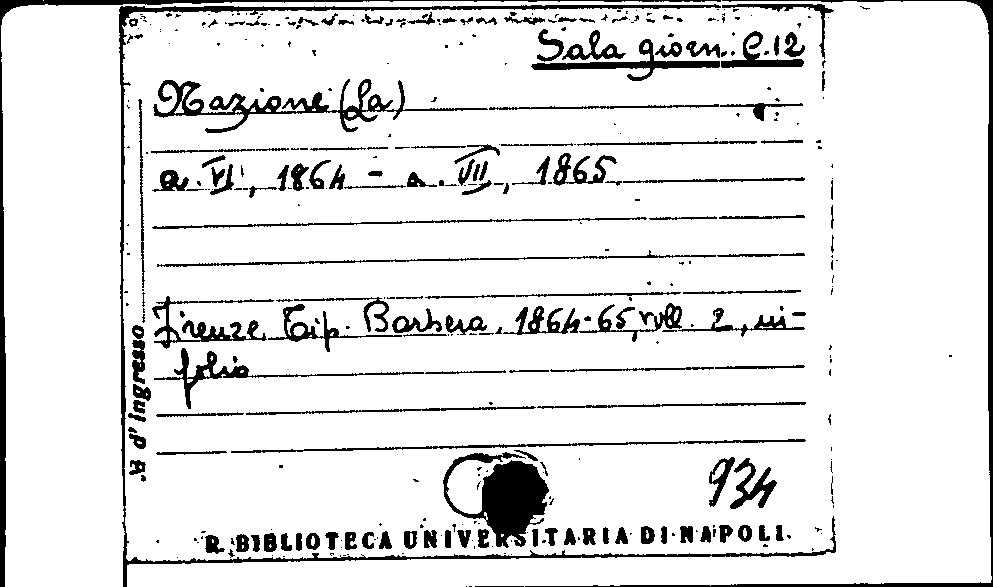 Sala giorn. C.12
Nazione (La)
a. VI, 1864 - a. VII, 1865.
Firenze, Tip. Barbera, 1864-65, voll. 2, in-
folio
N. d'ingresso
934
R. BIBLIOTECA UNIVERSITARIA DI NAPOLI.